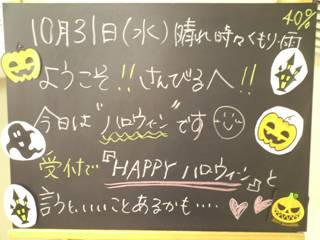 40%
10月31日(水) 晴れ時々くもり・雨
ようこそ!!さんぴるへ!!
今日は"ハロウィン"です
受付で『HAPPY ハロウィン』と
言うと、いいことあるかも‥‥